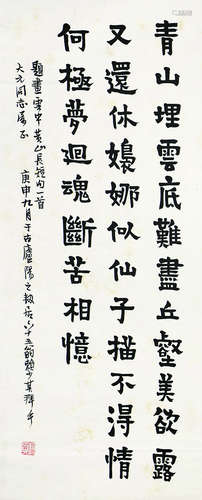 青山埋雲底難盡丘壑美欲露
又還休嬝娜似仙子描不得情
何極夢迴魂斷苦相憶
題畫雲中黃山長短句一首
大元同志屬正
庚申九月于古廬陽之